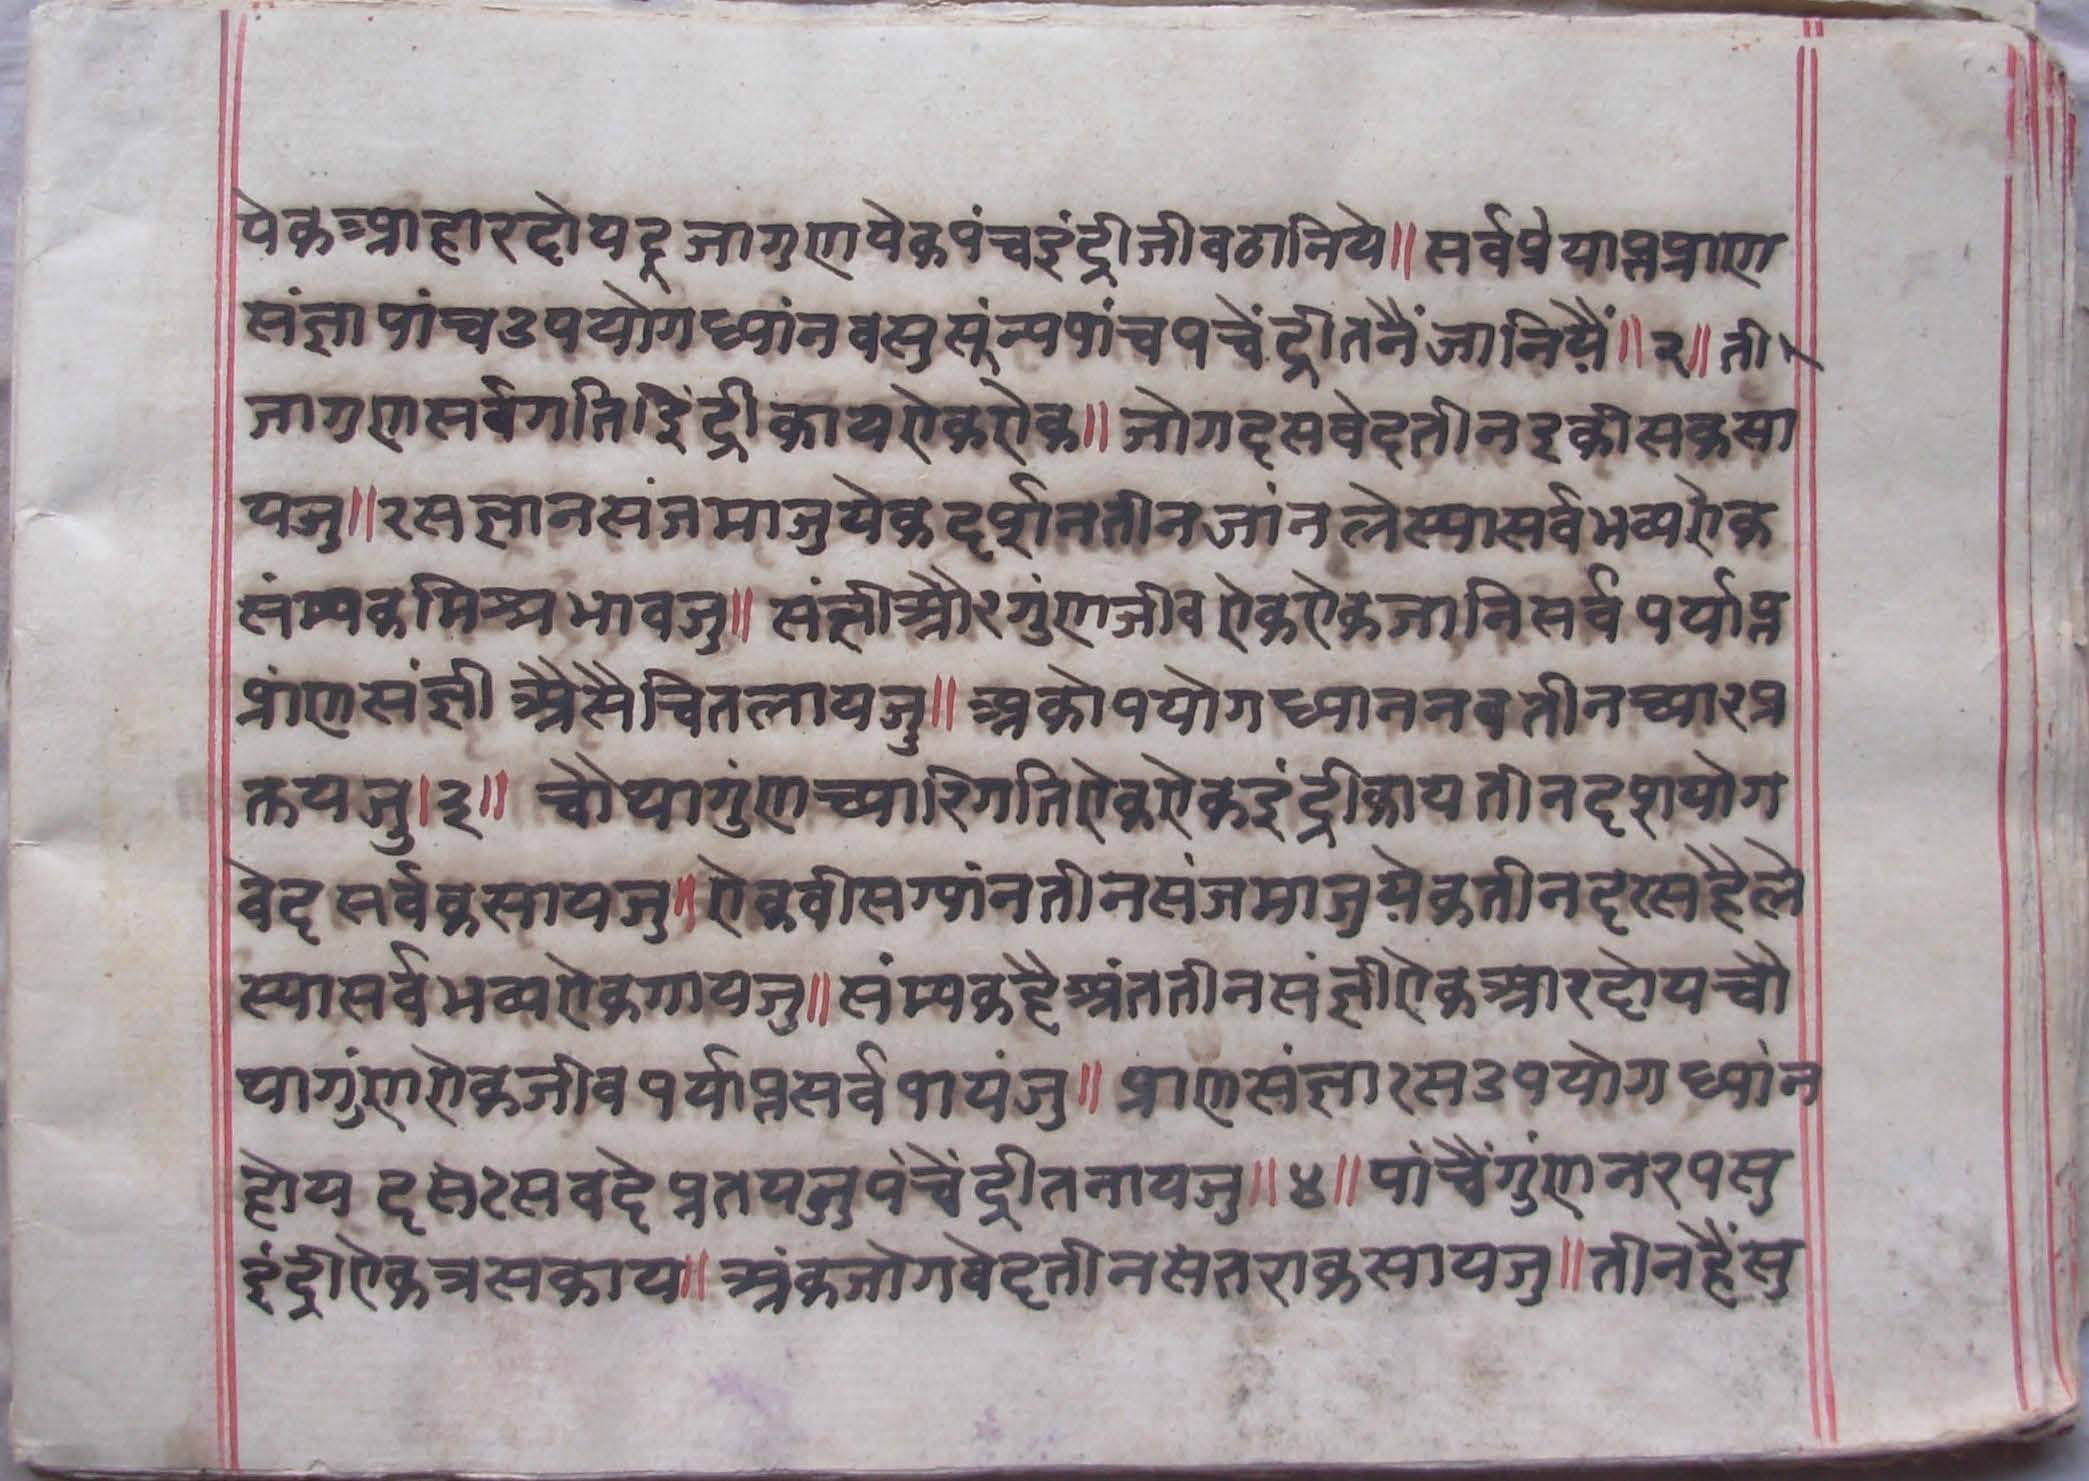 येकआहारदोयदूजागुणयेकपंचइंद्रीजीवठानिये॥सर्वप्रेयाप्तप्राण
संज्ञापांचउपयोगध्यांनवसुसूंन्यपांचपचेंद्रीतनैंजानियैं॥२॥ती
जागुणसर्वगतिइिंद्रीकायऐकऐक॥जोगदसवेदतीनइकीसकसा
यजु॥रसज्ञानसंजमाजुयेकदर्शनतीनजांनलेस्यासर्वभव्यऐक
संम्यकमिश्रभावजु॥संज्ञीऔरगुंणजीवऐकऐकजानिसर्वपर्याप्त
प्रांणसंज्ञीअैसैचितलायजु॥अकोपयोगध्याननवतीनच्यारप्र
तयजु।३॥चौथागुंणच्यारिगतिऐकऐकइंद्रीकायतीनदशयोग
वेदसर्वकसायजु॥ऐकवीसग्यांनतीनसंजमाजुयेकतीनदरसहैले
स्यासर्वभव्यऐकगायजु॥संम्यकहैअंततीनसंज्ञीऐकआरदोयचौ
थागुंणऐकजीवपर्याप्तसर्वपायंजु॥प्राणसंज्ञारसउपयोगध्यांन
होयदसरसवदेप्रतयजुपंचेंद्रीतनायजु॥४॥पांचैंगुंणनरपसु
इंद्रीऐकत्रसकाय॥अंकजोगवेदतीनसतराकसायजु॥तीनहैंसु